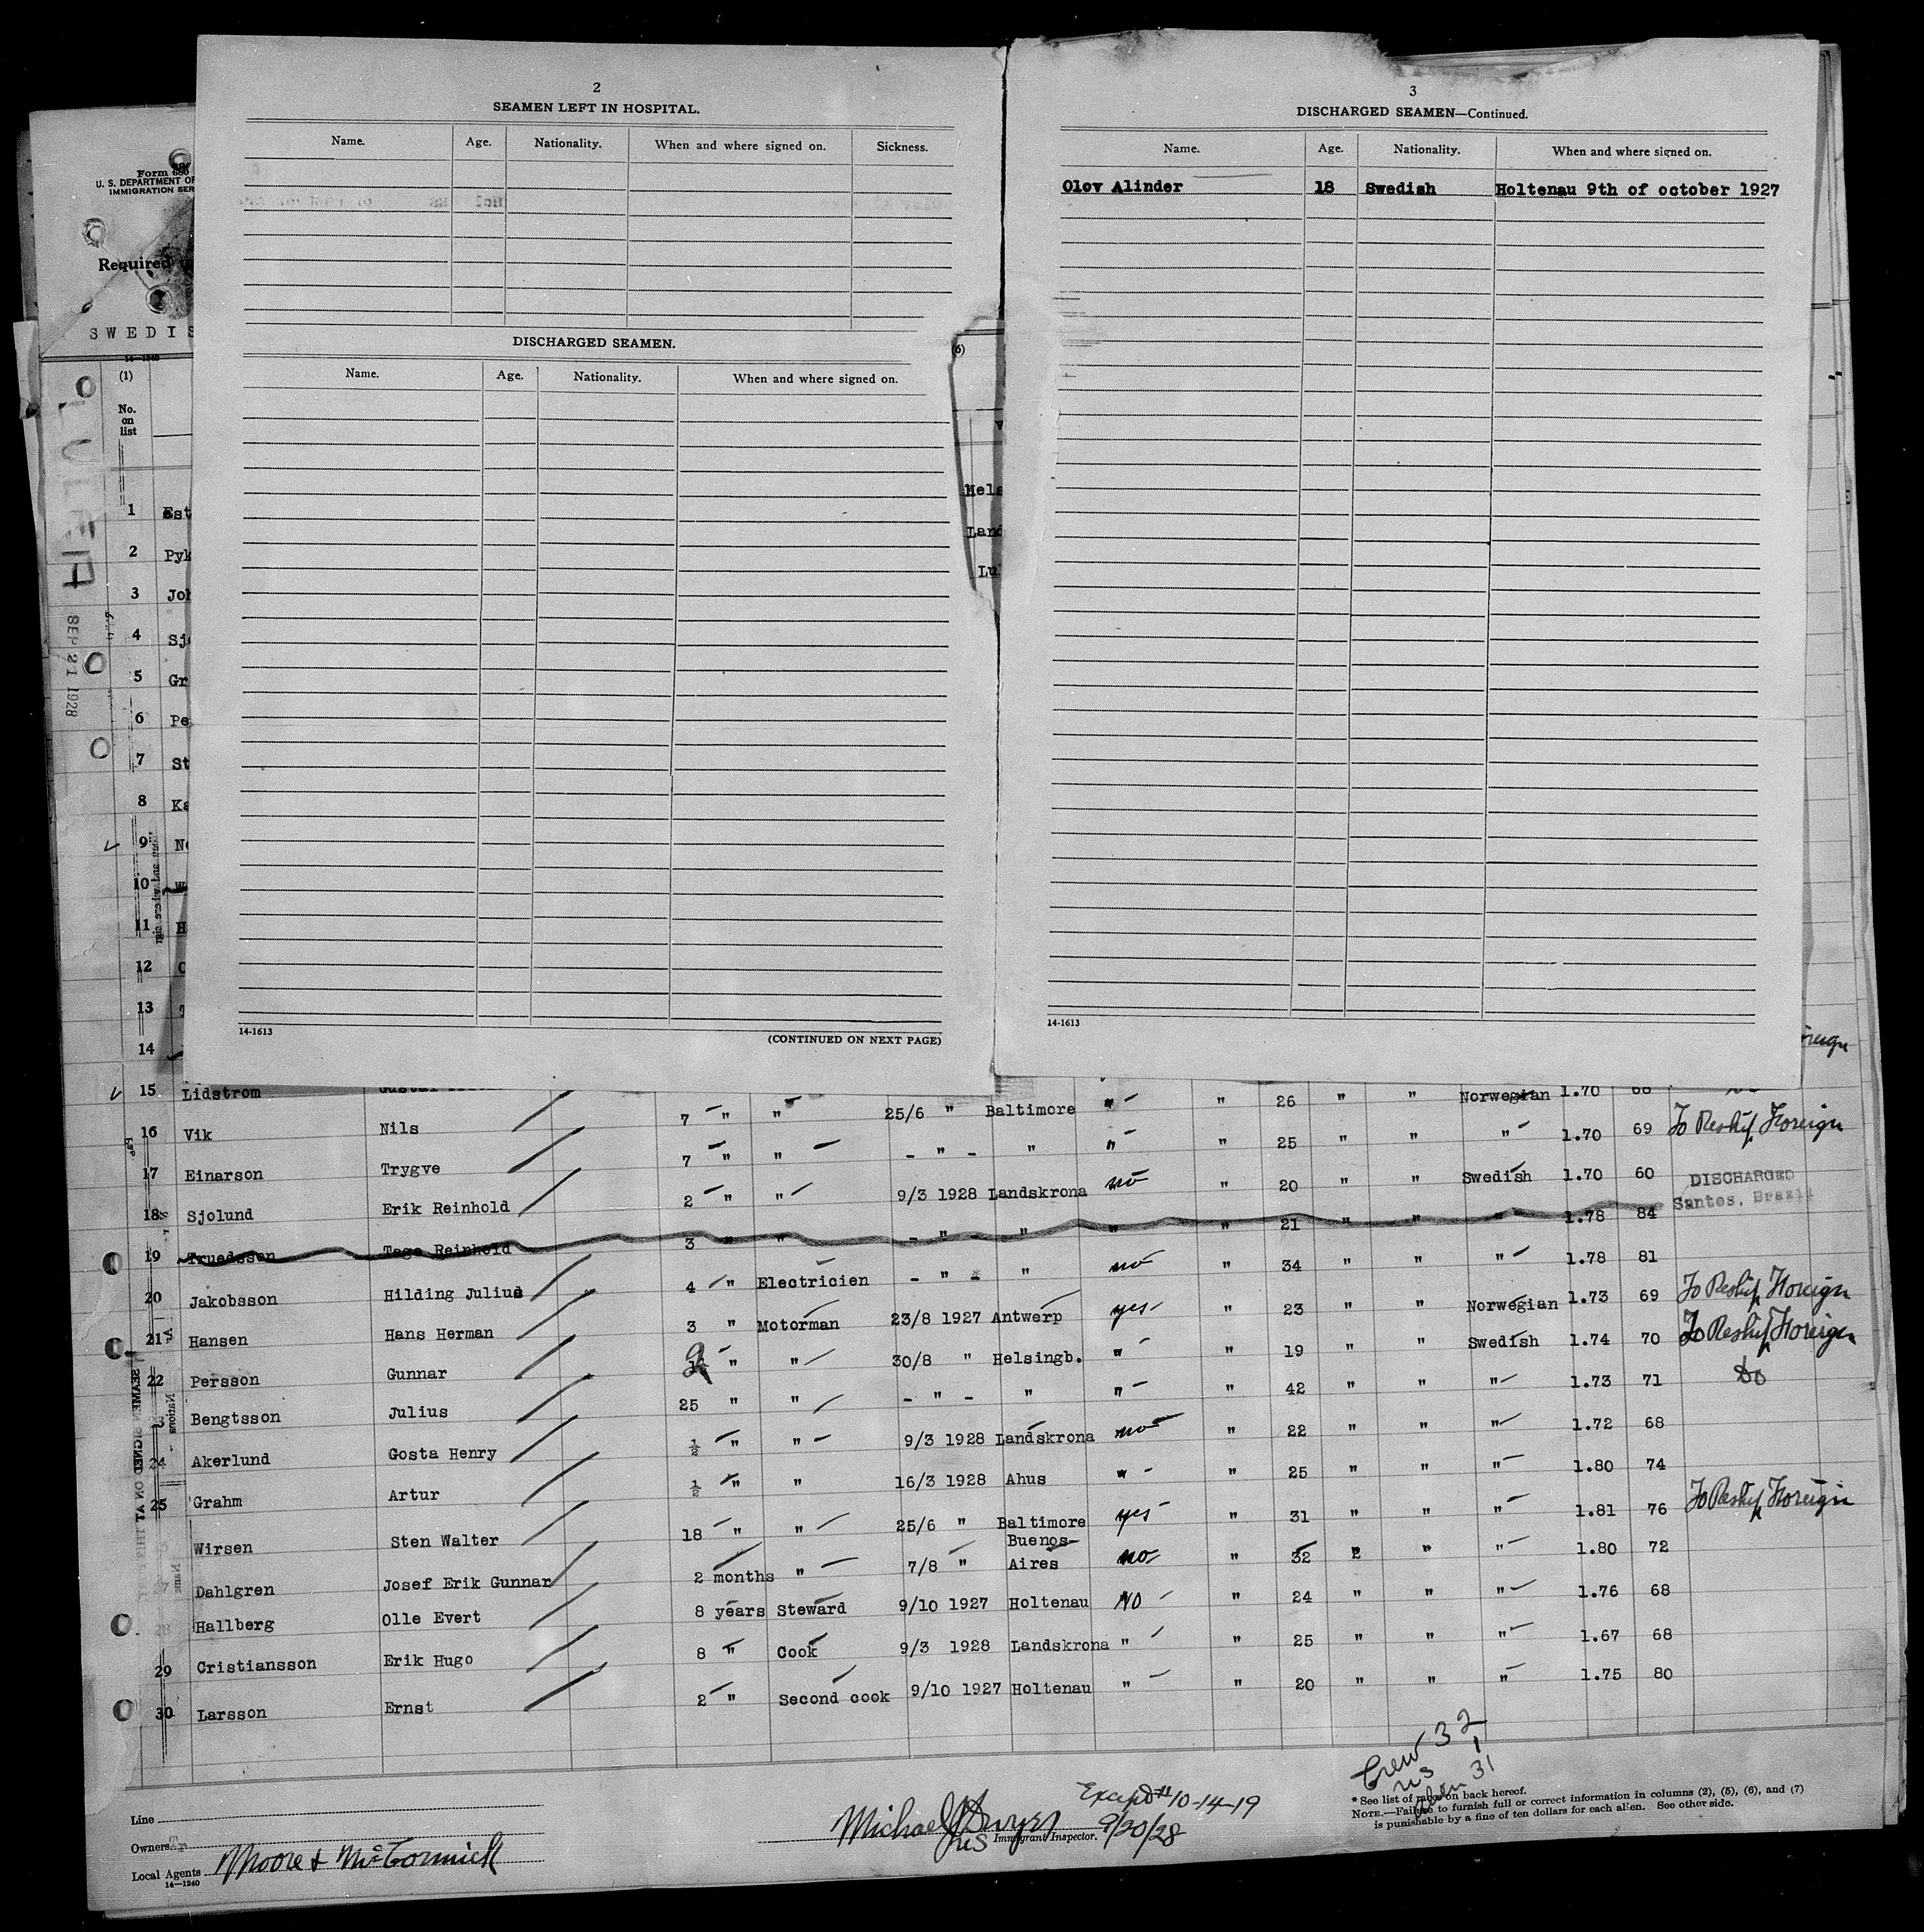 2
SEAMEN LEFT IN HOSPITAL.
Name. Age. Nationality. When and where signed on. Sickness.
DISCHARGED SEAMEN.
Name. Age. Nationality. When and where signed on.
14-1613
(CONTINUED ON NEXT PAGE)
3
DISCHARGED SEAMEN—Continued.
Name. Age. Nationality. When and where signed on.
Olov Alinder 18 Swedish Holtenau 9th of october 1927
14-1613
Form 680
U. S. DEPARTMENT OF
IMMIGRATION SER
Required
SWEDIS
14—1240
(1)
(6)
No.
on
list
SEP 21 1928
1 Est
Hels
2 Pyk
Land
3 Joh
Lu
4 Sj
5 Gr
6 Pe
7 St
8 Ka
9 No
10 W
11 H
12
13
14
15 Lidstrom Gustaf
16 Vik Nils 7 " " 25/6 " Baltimore " " 26 " " Norwegian 1.70 68
17 Einarson Trygve 7 " " - " - " " " 25 " " " 1.70 69 To Reship Foreign
18 Sjolund Erik Reinhold 2 " " 9/3 1928 Landskrona no " 20 " " Swedish 1.70 60
19 Truedsson Tage Reinhold 3 " " - " - " " " 21 " " " 1.78 84 DISCHARGED Santos, Brazil
20 Jakobsson Hilding Julius 4 " Electricien - " - " no " 34 " " " 1.78 81
21 Hansen Hans Herman 3 " Motorman 23/8 1927 Antwerp yes " 23 " " Norwegian 1.73 69 To Reship Foreign
22 Persson Gunnar 2 " " 30/8 " Helsingb. " " 19 " " Swedish 1.74 70 To Reship Foreign
23 Bengtsson Julius 25 " " - " - " " " 42 " " " 1.73 71 Do
24 Akerlund Gosta Henry ½ " " 9/3 1928 Landskrona no " 22 " " " 1.72 68
25 Grahm Artur ½ " " 16/3 1928 Ahus " " 25 " " " 1.80 74
Wirsen Sten Walter 18 " " 25/6 " Baltimore yes " 31 " " " 1.81 76 To Reship Foreign
27 Dahlgren Josef Erik Gunnar 2 months " 7/8 " Buenos-Aires no " 32 " " " 1.80 72
28 Hallberg Olle Evert 8 years Steward 9/10 1927 Holtenau NO " 24 " " " 1.76 68
29 Cristiansson Erik Hugo 8 " Cook 9/3 1928 Landskrona " " 25 " " " 1.67 68
30 Larsson Ernst 2 " Second cook 9/10 1927 Holtenau " " 20 " " " 1.75 80
Crew 32
US 1
Alien 31
Line
Owners
Local Agents Moore & McCormick
14—1240
Immigrant Inspector.
9/20/28
10-14-19
* See list of races on back hereof.
NOTE.—Failure to furnish full or correct information in columns (2), (5), (6), and (7)
is punishable by a fine of ten dollars for each alien. See other side.